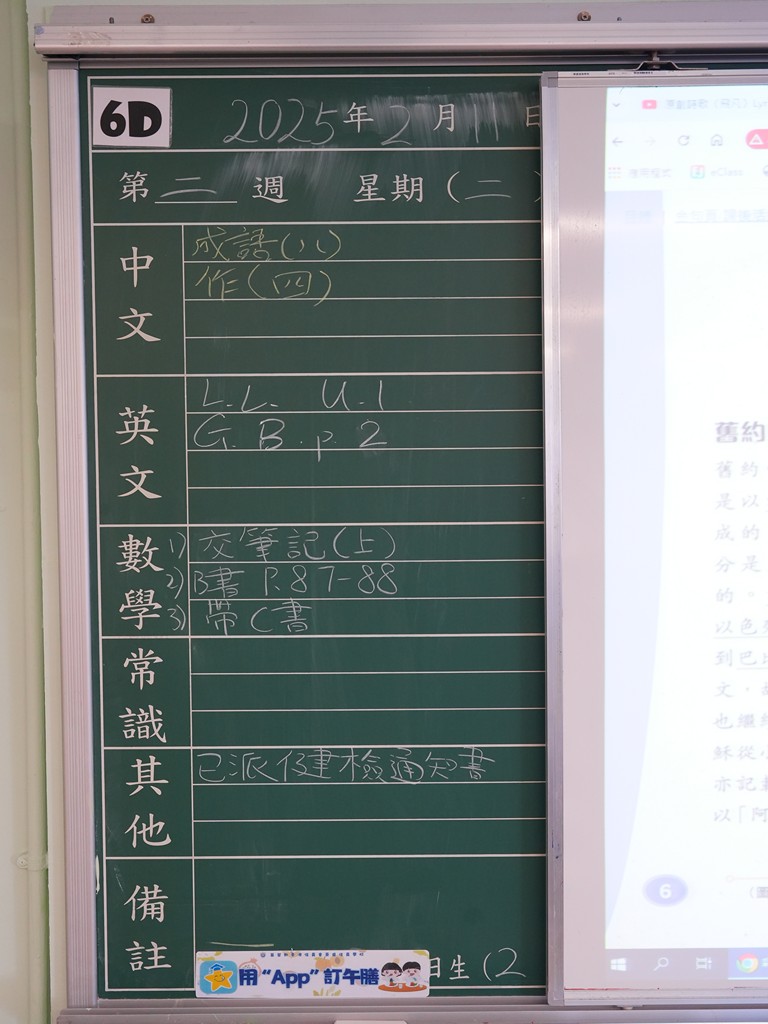 6D
2025年2月11日
第二週 星期(二)
中文
成語(八)
作(四)
英文
L.L. U.1
G.B. p.2
數學
1) 交筆記(上)
2) B書 P.87-88
3) 帶C書
常識
其他
已派健檢通知書
備註
用“App”訂午膳
日生(2
應用程式
eClass
舊約
舊約
是以
成的
分是
的。
以色列
到巴比
文，
也繼續
穌從小
亦記載
以「阿
6
(圖